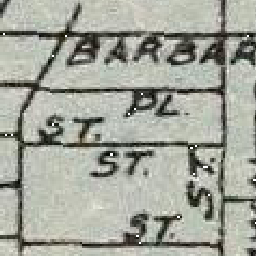 BARBAR
PL.
ST.
ST.
ST.
ST.